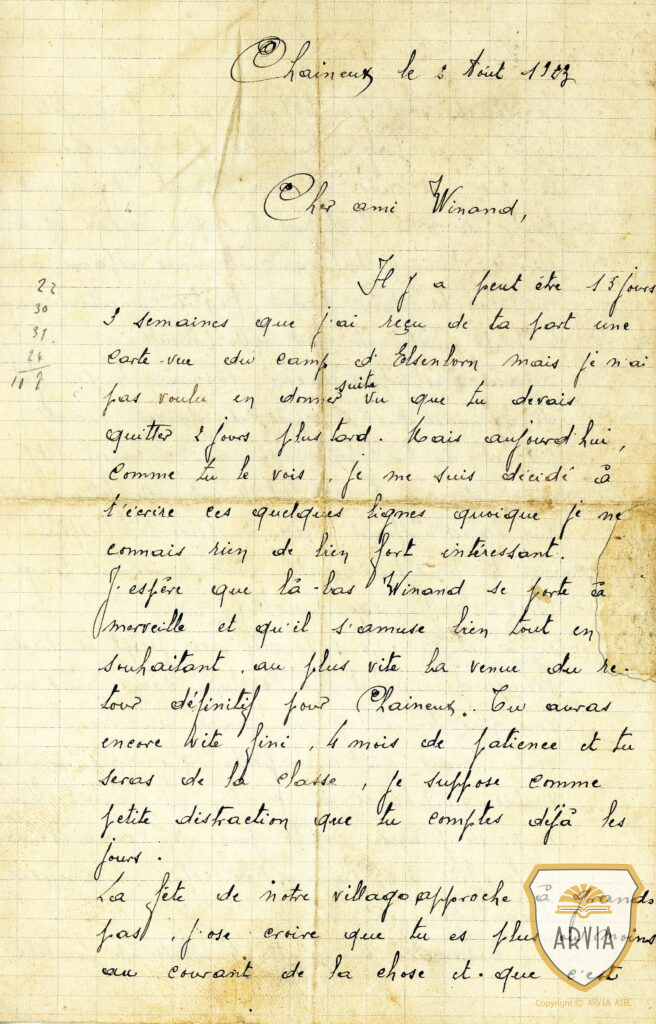 Chaineux le 2 Août 1923
Cher ami Winand,
Il y a peut être 15 jours
3 semaines que j'ai reçu de ta part une
carte-vue du camp d'Elsenborn mais je n'ai
pas voulu en donner suite vu que tu devais
quitter 2 jours plus tard. Mais aujourd'hui,
comme tu le vois, je me suis décidé à
t'écrire ces quelques lignes quoique je ne
connais rien de bien fort intéressant.
J'espère que là-bas Winand se porte à
merveille et qu'il s'amuse bien tout en
souhaitant, au plus vite la venue du re-
tour définitif pour Chaineux. Tu auras
encore vite fini, 4 mois de patience et tu
seras de la classe, je suppose comme
petite distraction que tu comptes déjà les
jours.
La fête de notre village approche à grands
pas, j'ose croire que tu es plus ou moins
au courant de la chose et que c'est
22
30
31
24
ARVIA
Copyright © ARVIA ASBL